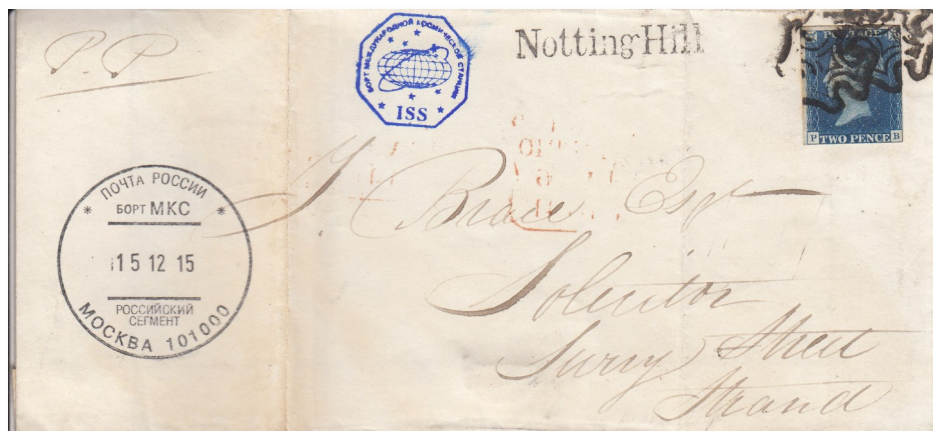 P.P
БОРТ МЕЖДУНАРОДНОЙ КОСМИЧЕСКОЙ СТАНЦИИ
ISS
Notting Hill
POSTAGE
P TWO PENCE B
ПОЧТА РОССИИ
БОРТ МКС
15 12 15
РОССИЙСКИЙ
СЕГМЕНТ
МОСКВА 101000
J Brace Esqr
Solicitor
Surry Street
Strand